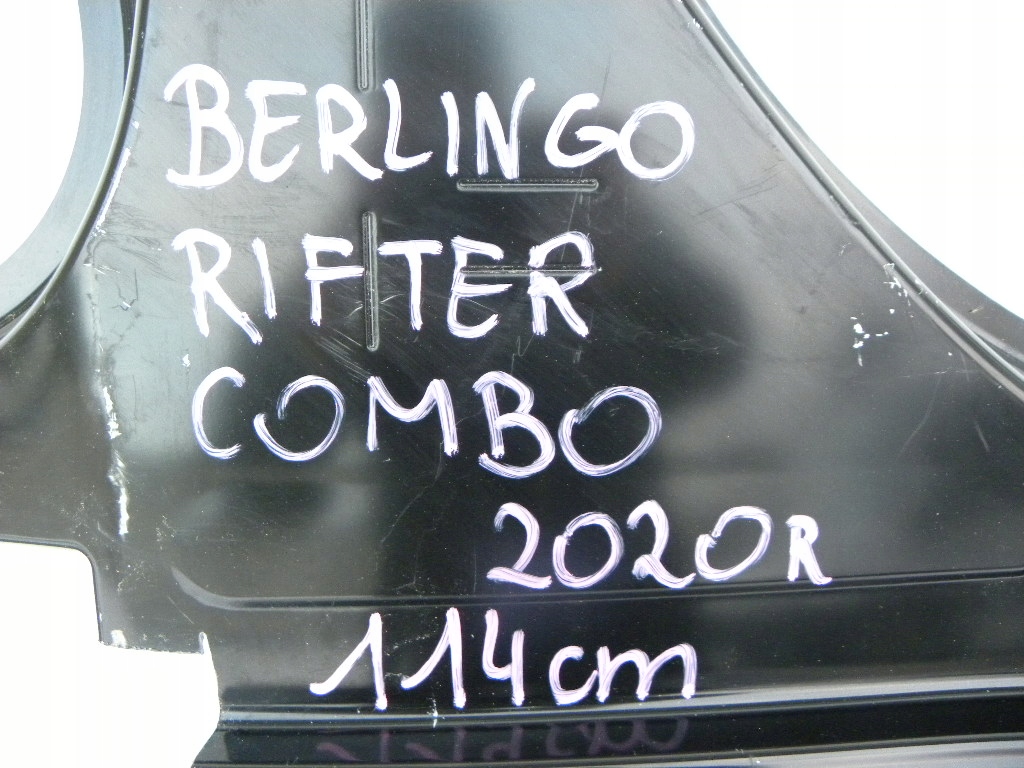 BERLINGO
RIFTER
COMBO
2020R
114cm